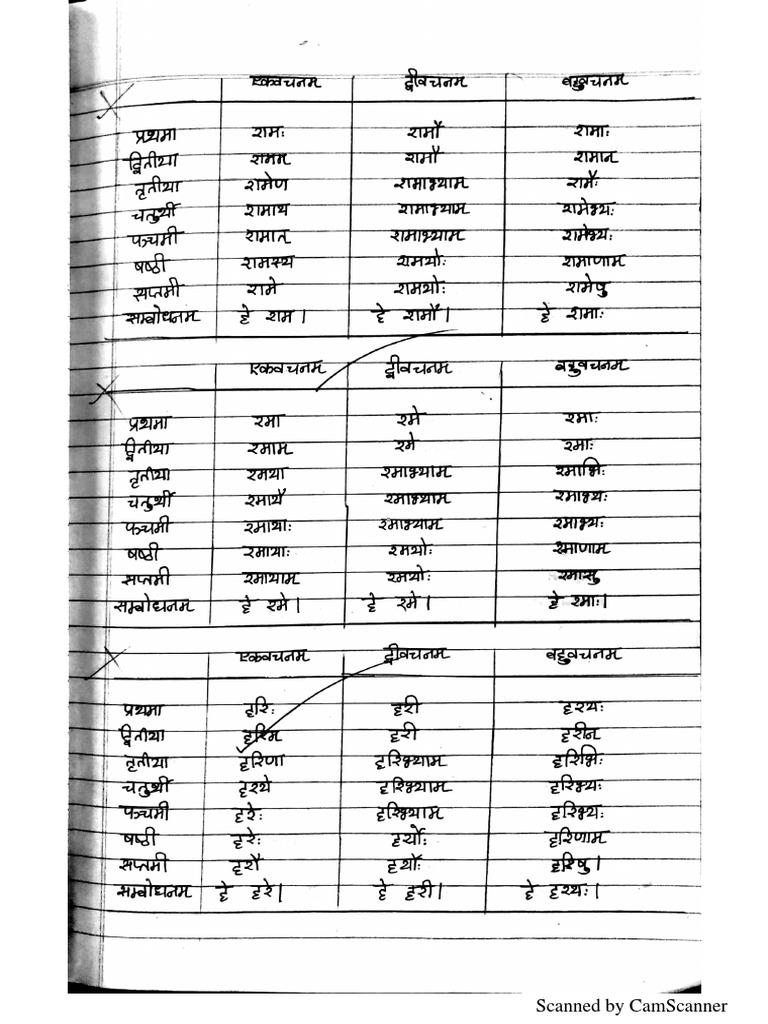 एकवचनम द्वीवचनम बहुवचनम
प्रथमा रामः रामौ रामाः
द्वितीया रामम रामौ रामान
तृतीया रामेण रामाभ्याम रामैः
चतुर्थी रामाय रामाभ्याम रामेभ्यः
पञ्चमी रामात रामाभ्याम रामेभ्यः
षष्ठी रामस्य रामयोः रामाणाम
सप्तमी रामे रामयोः रामेषु
सम्बोधनम हे राम। हे रामौ। हे रामाः
एकवचनम द्वीवचनम बहुवचनम
प्रथमा रमा रमे रमाः
द्वितीया रमाम रमे रमाः
तृतीया रमया रमाभ्याम रमाभिः
चतुर्थी रमायै रमाभ्याम रमाभ्यः
पञ्चमी रमायाः रमाभ्याम रमाभ्यः
षष्ठी रमायाः रमयोः रमाणाम
सप्तमी रमायाम रमयोः रमासु
सम्बोधनम हे रमे। हे रमे। हे रमाः।
एकवचनम द्वीवचनम बहुवचनम
प्रथमा हरिः हरी हरयः
द्वितीया हरिम हरी हरीन
तृतीया हरिणा हरिभ्याम हरिभिः
चतुर्थी हरये हरिभ्याम हरिभ्यः
पञ्चमी हरेः हरिभ्याम हरिभ्यः
षष्ठी हरेः हर्योः हरिणाम
सप्तमी हरौ हर्योः हरिषु।
सम्बोधनम हे हरे। हे हरी। हे हरयः।
Scanned by CamScanner